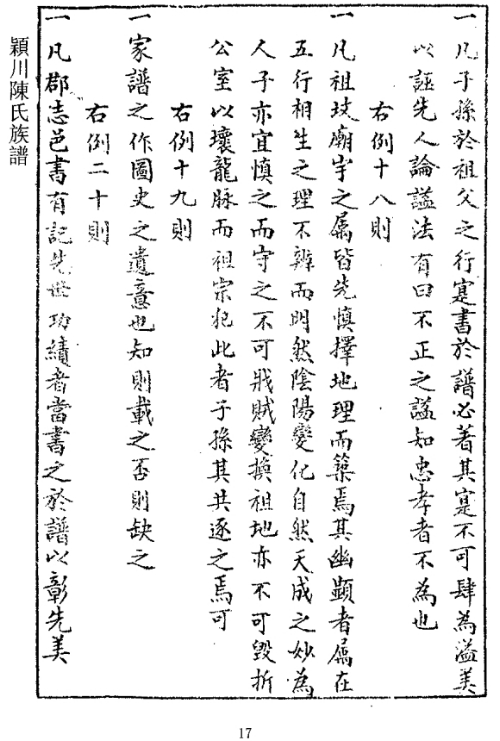 一凡子孫於祖父之行寔書於譜必著其寔不可肆為溢美
以誣先人論謚法有曰不正之謚知忠孝者不為也
右例十八則
一凡祖坟廟宇之屬皆先慎擇地理而築焉其幽顯者屬在
五行相生之理不辨而明然陰陽變化自然天成之妙為
人子亦宜慎之而守之不可戕賊變換祖地亦不可毀折
公室以壞龍脉而祖宗犯此者子孫其共逐之焉可
右例十九則
一家譜之作圖史之遺意也知則載之否則缺之
右例二十則
一凡郡志邑書有記先世功績者當書之於譜以彰先美
穎川陳氏族譜
17